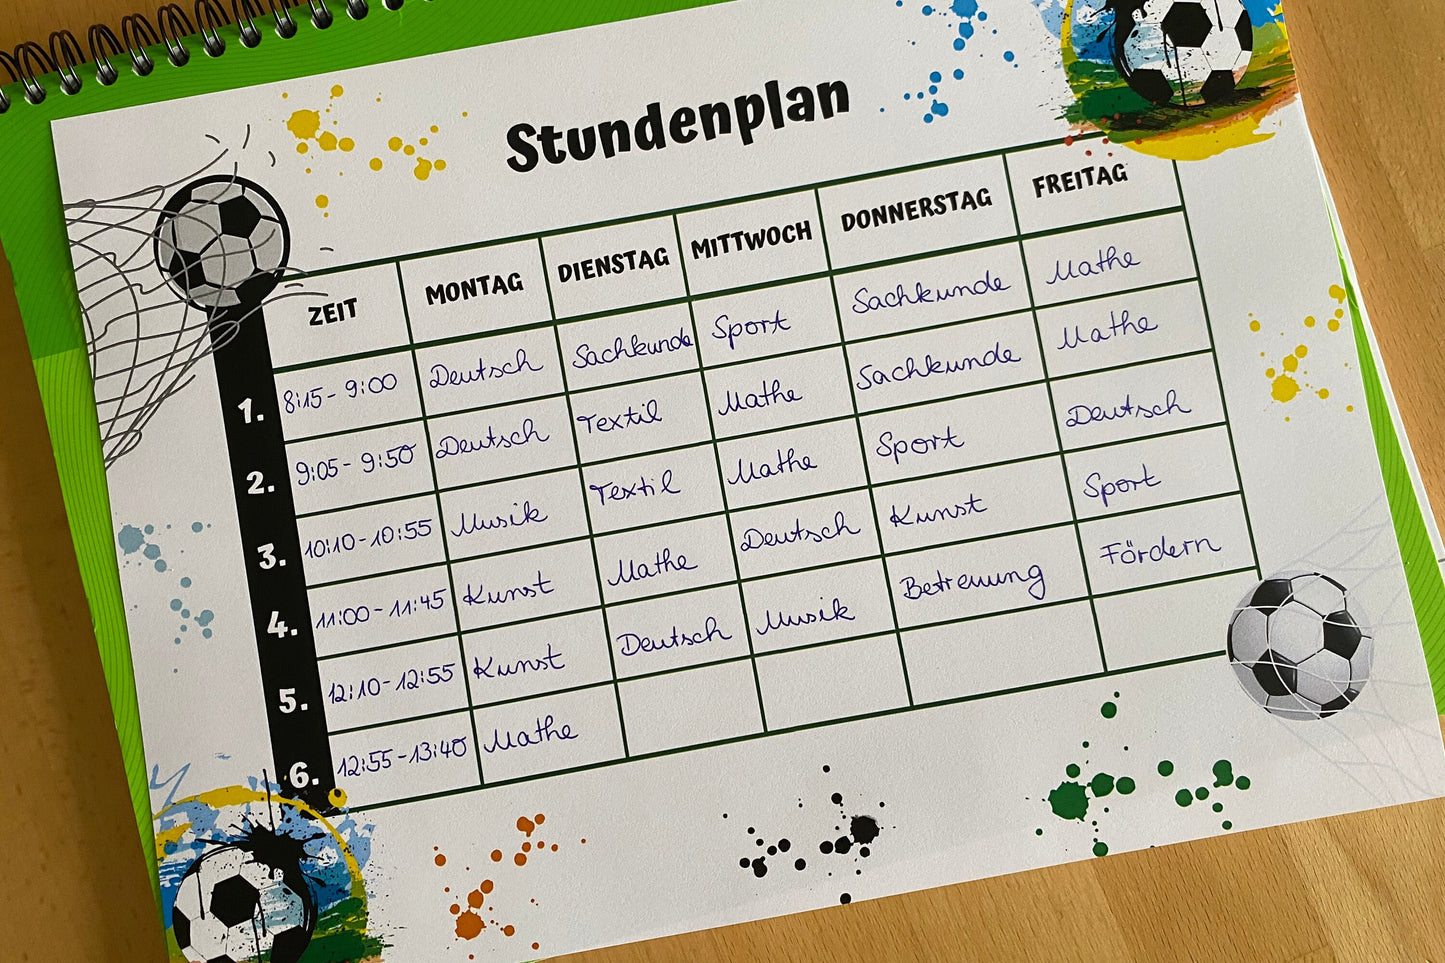 Stundenplan
ZEIT MONTAG DIENSTAG MITTWOCH DONNERSTAG FREITAG
1. 8:15 - 9:00 Deutsch Sachkunde Sport Sachkunde Mathe
2. 9:05 - 9:50 Deutsch Textil Mathe Sachkunde Mathe
3. 10:10 - 10:55 Musik Textil Mathe Sport Deutsch
4. 11:00 - 11:45 Kunst Mathe Deutsch Kunst Sport
5. 12:10 - 12:55 Kunst Deutsch Musik Betreuung Fördern
6. 12:55 - 13:40 Mathe